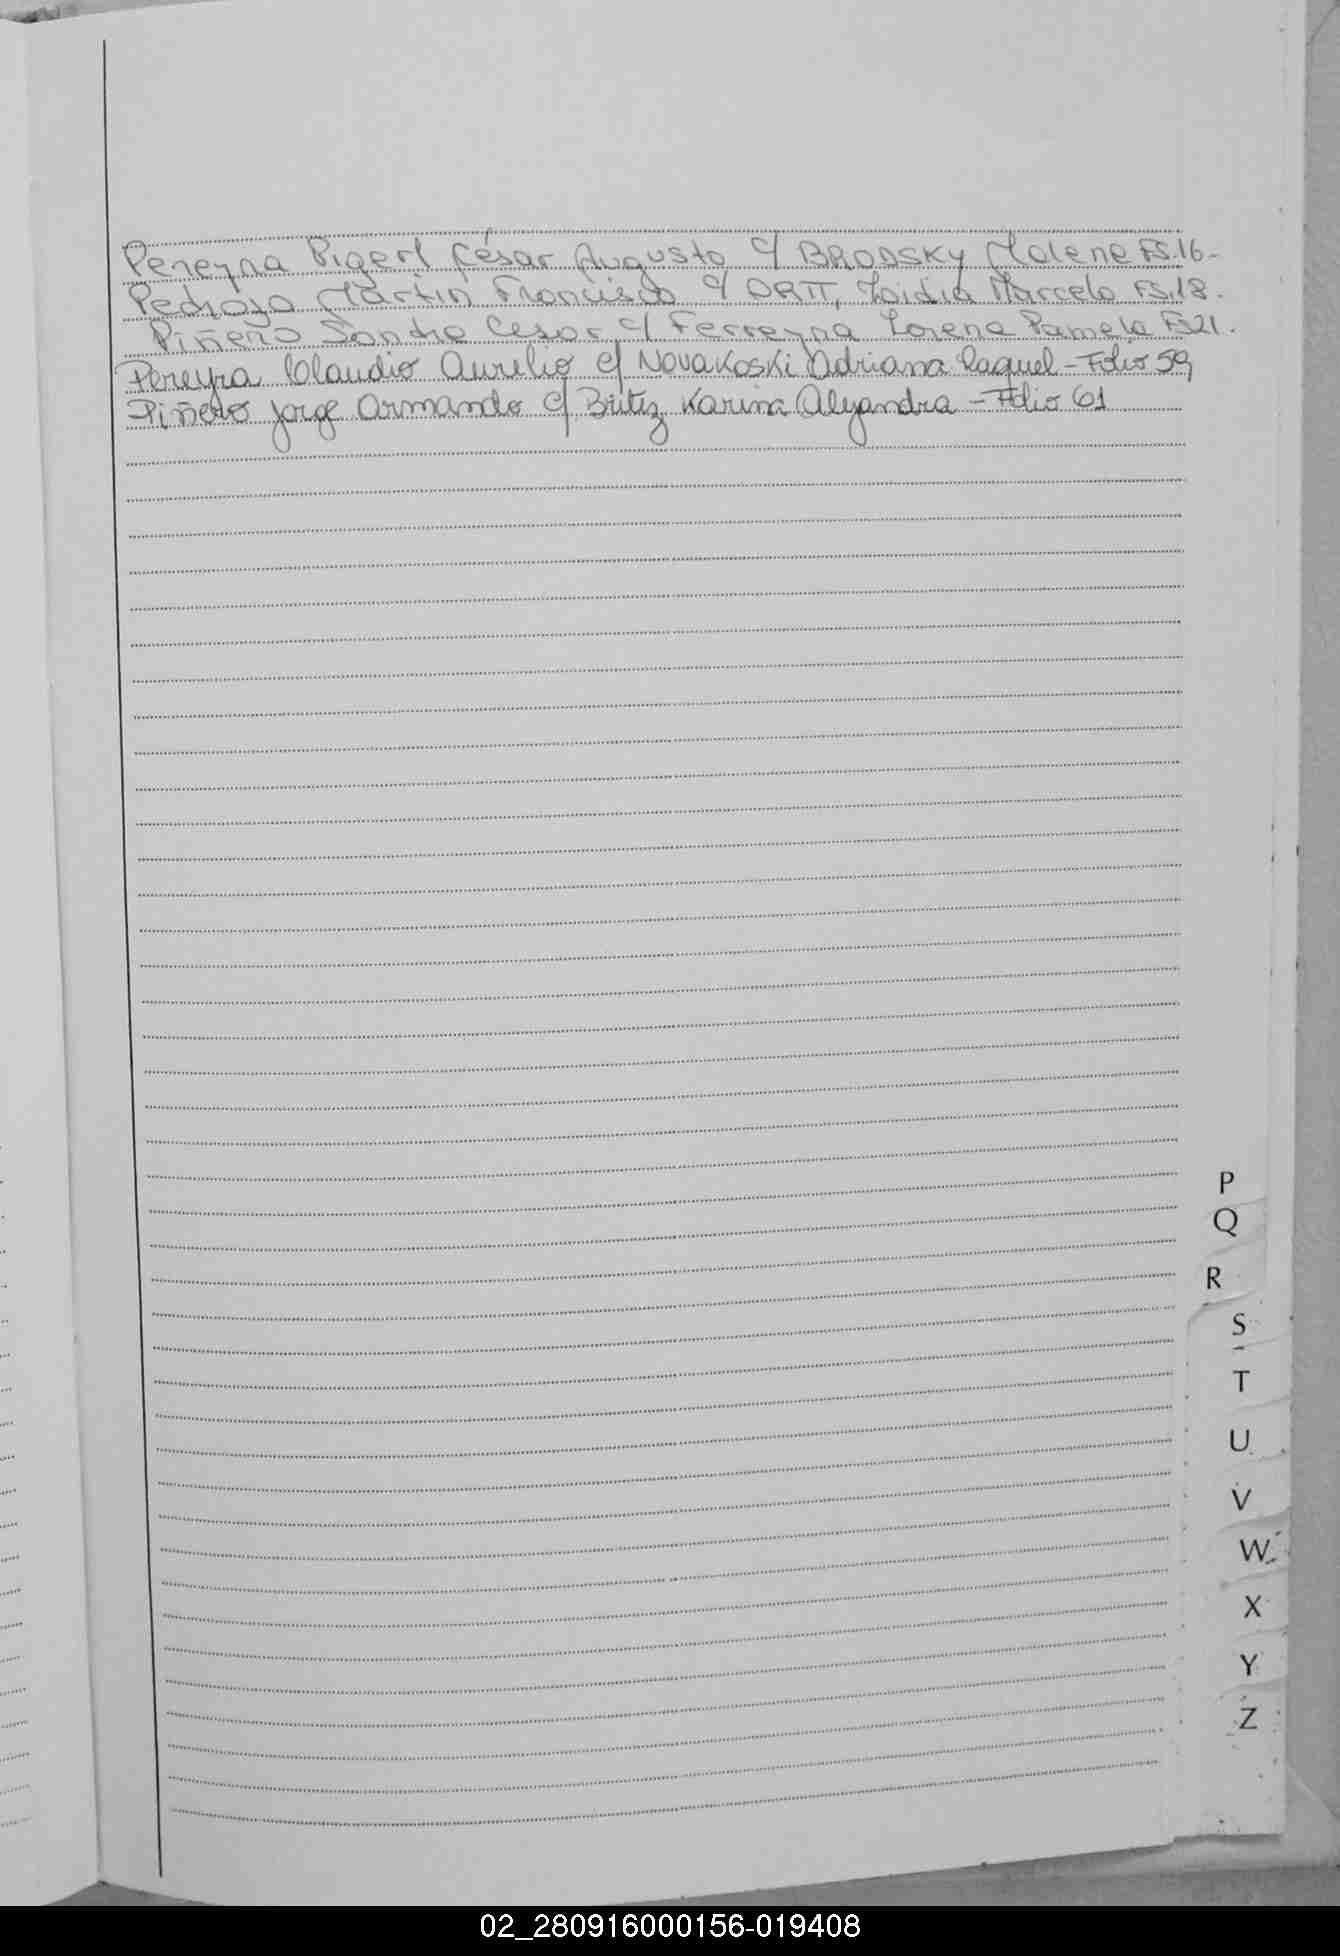 Pereyra Pigerl César Augusto c/ BRODSKY Malene FS.16-
Pedrozo Martín Francisco c/ ORTT, Marcela FS.18.
Piñero Sandro Cesar c/ Ferreyra Lorena Pamela FS21.
Pereyra Claudio Aurelio c/ Novakoski Adriana Raquel - Folio 59
Piñero Jorge Armando c/ Britez Karina Alejandra - Folio 61
P
Q
R
S
T
U
V
W
X
Y
Z
02_280916000156-019408